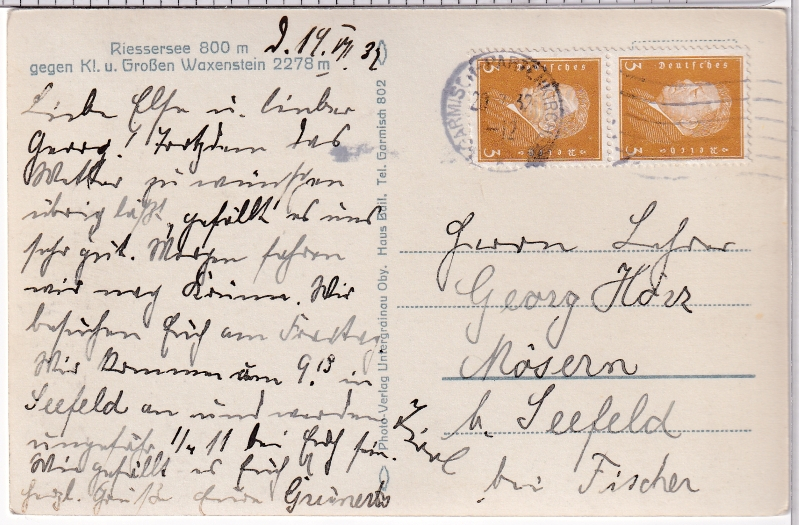 Riessersee 800 m
gegen Kl. u. Großen Waxenstein 2278 m
d. 19. VII 32
Liebe Else u. lieber
Georg! Trotzdem das
Wetter zu wünschen
übrig läßt, gefällt es uns
sehr gut. Morgen fahren
wir nach Krünn. Wir
besuchen Euch am Freitag.
Wir kommen um 9.13 in
Seefeld an und werden
ungefähr 1/4 11 bei Euch sein.
Wie gefällt es Euch
herzl. Grüße Eure Grünerts
Photo-Verlag Untergrainau Oby. Haus Döll. Tel. Garmisch 802
GARMISCH-PARTENKIRCHEN
32
-12
3 Deutsches Reich 3
3 Deutsches Reich 3
Herrn Lehrer
Georg Hörz
Mösern
b. Seefeld
Tirol
bei Fischer